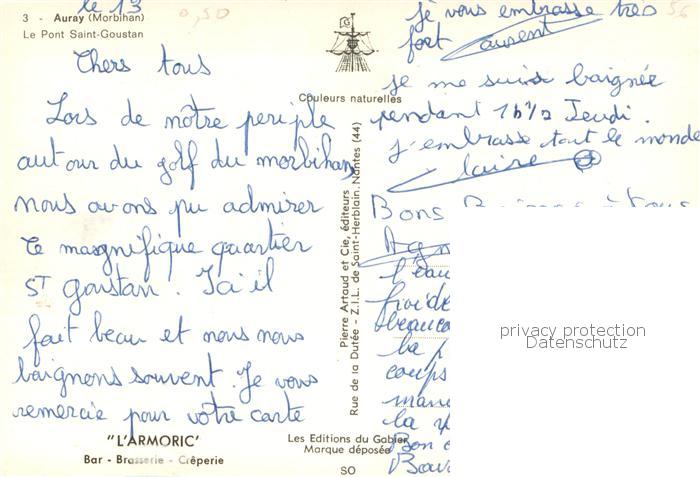 le 13
3 - Auray (Morbihan)
Le Pont Saint-Goustan
0,50
Chers tous
Lors de nôtre periple
autour du golf du morbihan,
nous avons pu admirer
le magnifique quartier
ST goustan. Ici il
fait beau et nous nous
baignons souvent. Je vous
remercie pour vôtre carte
"L'ARMORIC'
Bar - Brasserie - Crêperie
Couleurs naturelles
Pierre Artaud et Cie, éditeurs
Rue de la Dutée - Z.I.L. de Saint-Herblain. Nantes (44)
Les Editions du Gabier
Marque déposée
SO
je vous embrasse très
fort Laurent
56
je me suis baignée
pendant 1h1/2 Jeudi.
j'embrasse tout le monde
Claire
Bons à tous
l'eau
froide
beauco
la
coups
man
la
Bon
privacy protection
Datenschutz